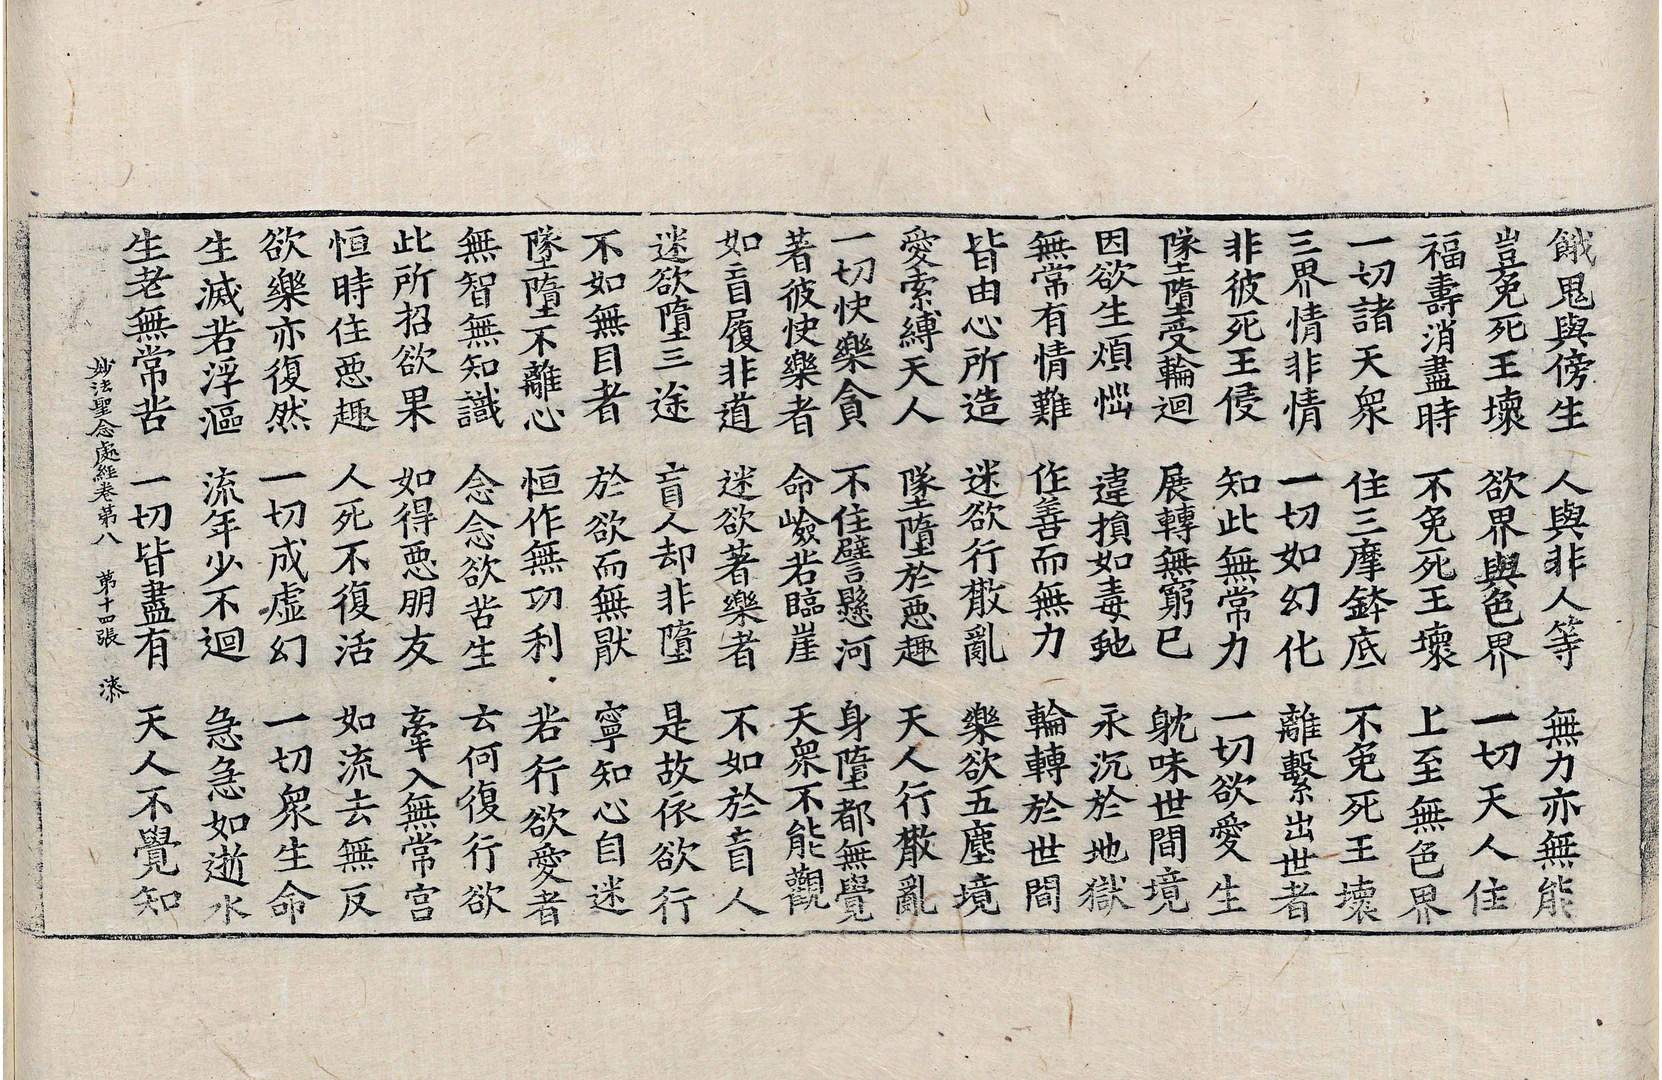 餓鬼與傍生 人與非人等 無力亦無能
豈免死王壞 欲界與色界 一切天人住
福壽消盡時 不免死王壞 上至無色界
一切諸天衆 住三摩鉢底 不免死王壞
三界情非情 一切如幻化 離繫出世者
非彼死王侵 知此無常力 一切欲愛生
墜墮受輪迴 展轉無窮已 躭味世間境
因欲生煩惱 違損如毒虵 永沉於地獄
無常有情難 作善而無力 輪轉於世間
皆由心所造 迷欲行散亂 樂欲五塵境
愛索縛天人 墜墮於惡趣 天人行散亂
一切快樂貪 不住譬懸河 身墮都無覺
著彼快樂者 命嶮若臨崖 天衆不能觀
如盲履非道 迷欲著樂者 不如於盲人
迷欲墮三途 盲人却非墮 是故依欲行
不如無目者 於欲而無猒 寧知心自迷
墜墮不離心 恒作無功利 若行欲愛者
無智無知識 念念欲苦生 云何復行欲
此所招欲果 如得惡朋友 牽入無常宮
恒時住惡趣 人死不復活 如流去無反
欲樂亦復然 一切成虛幻 一切衆生命
生滅若浮漚 流年少不迴 急急如逝水
生老無常苦 一切皆盡有 天人不覺知
妙法聖念處經卷第八 第十四張 漆